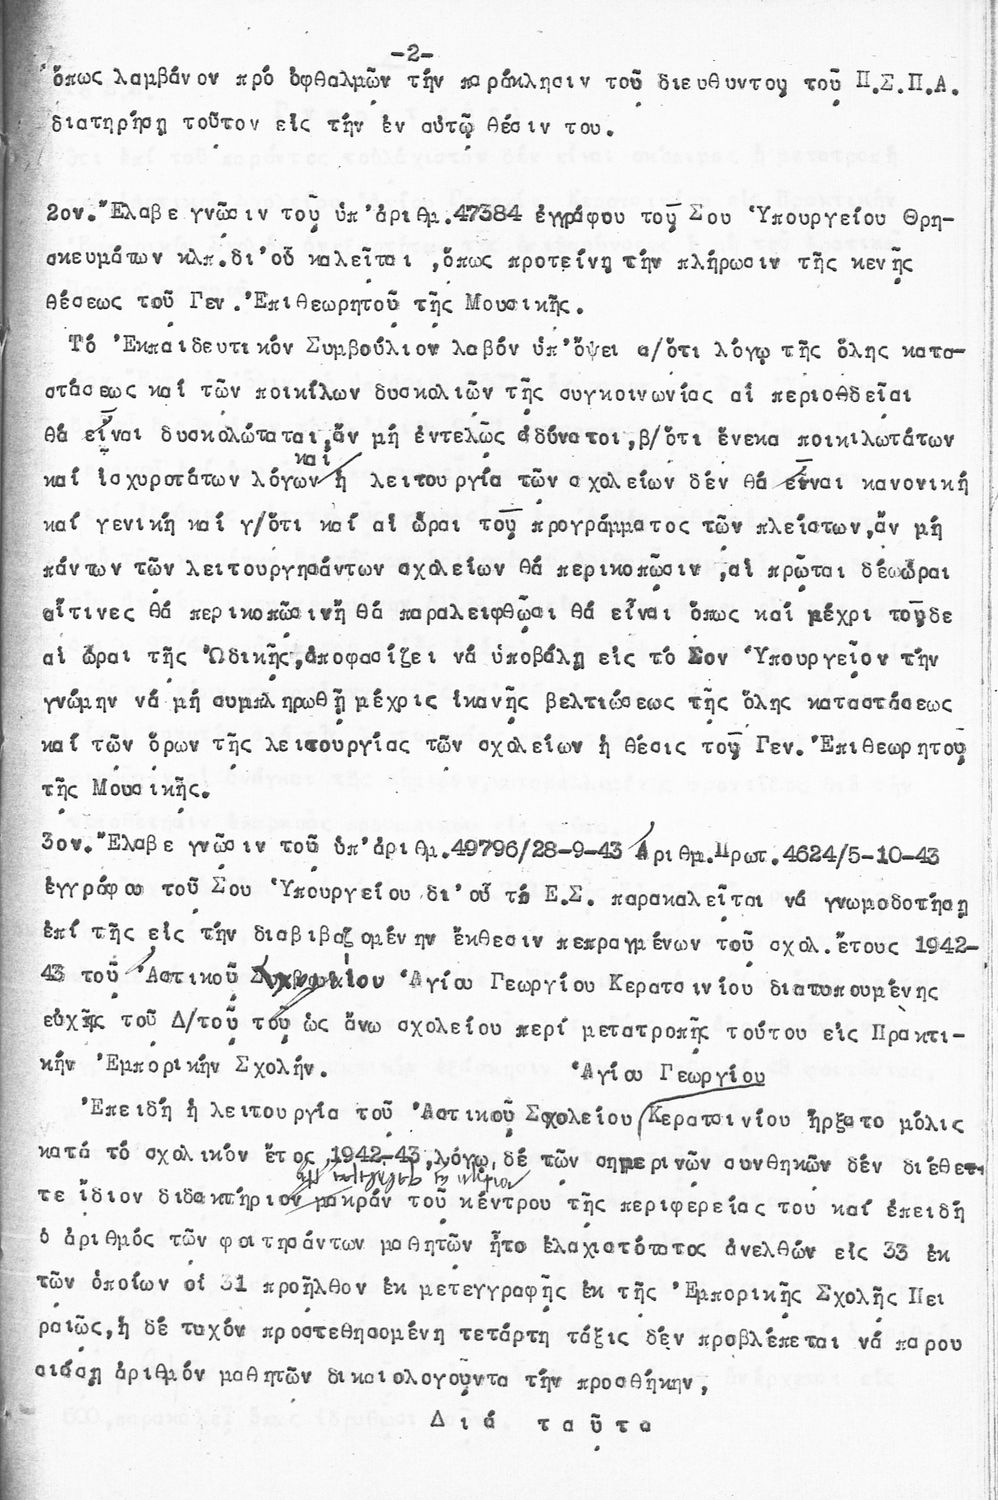 -2-
ὅπως λαμβάνον πρό ὀφθαλμῶν τήν παράκλησιν τοῦ διευθυντοῦ τοῦ Π.Σ.Π.Α.
διατηρήσῃ τοῦτον εἰς τήν ἐν αὐτῷ θέσιν του.
2ον. Ἔλαβε γνῶσιν τοῦ ὑπ'ἀριθμ.47384 ἐγγράφου τοῦ Σου Ὑπουργείου Θρη-
σκευμάτων κλπ.δι'οὗ καλεῖται ,ὅπως προτείνῃ τήν πλήρωσιν τῆς κενῆς
θέσεως τοῦ Γεν.Ἐπιθεωρητοῦ τῆς Μουσικῆς.
Τό Ἐκπαιδευτικόν Συμβούλιον λαβόν ὑπ'ὄψει α/ὅτι λόγῳ τῆς ὅλης κατα-
στάσεως καί τῶν ποικίλων δυσκολιῶν τῆς συγκοινωνίας αἱ περιοδεῖαι
θά εἶναι δυσκολώταται,ἄν μή ἐντελῶς ἀδύνατοι,β/ὅτι ἕνεκα ποικιλωτάτων
καί
καί ἰσχυροτάτων λόγων ἡ λειτουργία τῶν σχολείων δέν θά εἶναι κανονική
καί γενική καί γ/ὅτι καί αἱ ὧραι τοῦ προγράμματος τῶν πλείστων,ἄν μή
πάντων τῶν λειτουργησάντων σχολείων θά περικοπῶσιν ,αἱ πρῶται δέ ὧραι
αἵτινες θά περικοπῶσιν ἤ θά παραλειφθῶσι θά εἶναι ὅπως καί μέχρι τοῦδε
αἱ ὧραι τῆς Ὠδικῆς,ἀποφασίζει νά ὑποβάλῃ εἰς τό Σον Ὑπουργεῖον τήν
γνώμην νά μή συμπληρωθῇ μέχρις ἱκανῆς βελτιώσεως τῆς ὅλης καταστάσεως
καί τῶν ὅρων τῆς λειτουργίας τῶν σχολείων ἡ θέσις τοῦ Γεν. Ἐπιθεωρητοῦ
τῆς Μουσικῆς.
3ον. Ἔλαβε γνῶσιν τοῦ ὑπ'ἀριθμ.49796/28-9-43 Ἀριθμ.Πρωτ.4624/5-10-43
ἐγγράφου τοῦ Σου Ὑπουργείου δι'οὗ τό Ε.Σ. παρακαλεῖται νά γνωμοδοτήσῃ
ἐπί τῆς εἰς τήν διαβιβαζομένην ἔκθεσιν πεπραγμένων τοῦ σχολ.ἔτους 1942-
43 τοῦ Ἀστικοῦ Ἁγίου Γεωργίου Κερατσινίου διατυπουμένης
εὐχῆς τοῦ Δ/τοῦ τοῦ ὡς ἄνω σχολείου περί μετατροπῆς τούτου εἰς Πρακτι-
κήν Ἐμπορικήν Σχολήν.
Ἁγίου Γεωργίου
Ἐπειδή ἡ λειτουργία τοῦ Ἀστικοῦ Σχολείου Κερατσινίου ἤρξατο μόλις
κατά τό σχολικόν ἔτος 1942-43,λόγῳ δέ τῶν σημερινῶν συνθηκῶν δέν διέθετ-
τε ἴδιον διδακτήριον μακράν τοῦ κέντρου τῆς περιφερείας του καί ἐπειδή
ὁ ἀριθμός τῶν φοιτησάντων μαθητῶν ἦτο ἐλαχιστότατος ἀνελθών εἰς 33 ἐκ
τῶν ὁποίων οἱ 31 προῆλθον ἐκ μετεγγραφῆς ἐκ τῆς Ἐμπορικῆς Σχολῆς Πει
ραιῶς,ἡ δέ τυχόν προστεθησομένη τετάρτη τάξις δέν προβλέπεται νά παρου
σιάσῃ ἀριθμόν μαθητῶν δικαιολογοῦντα τήν προσθήκην,
Διά ταῦτα